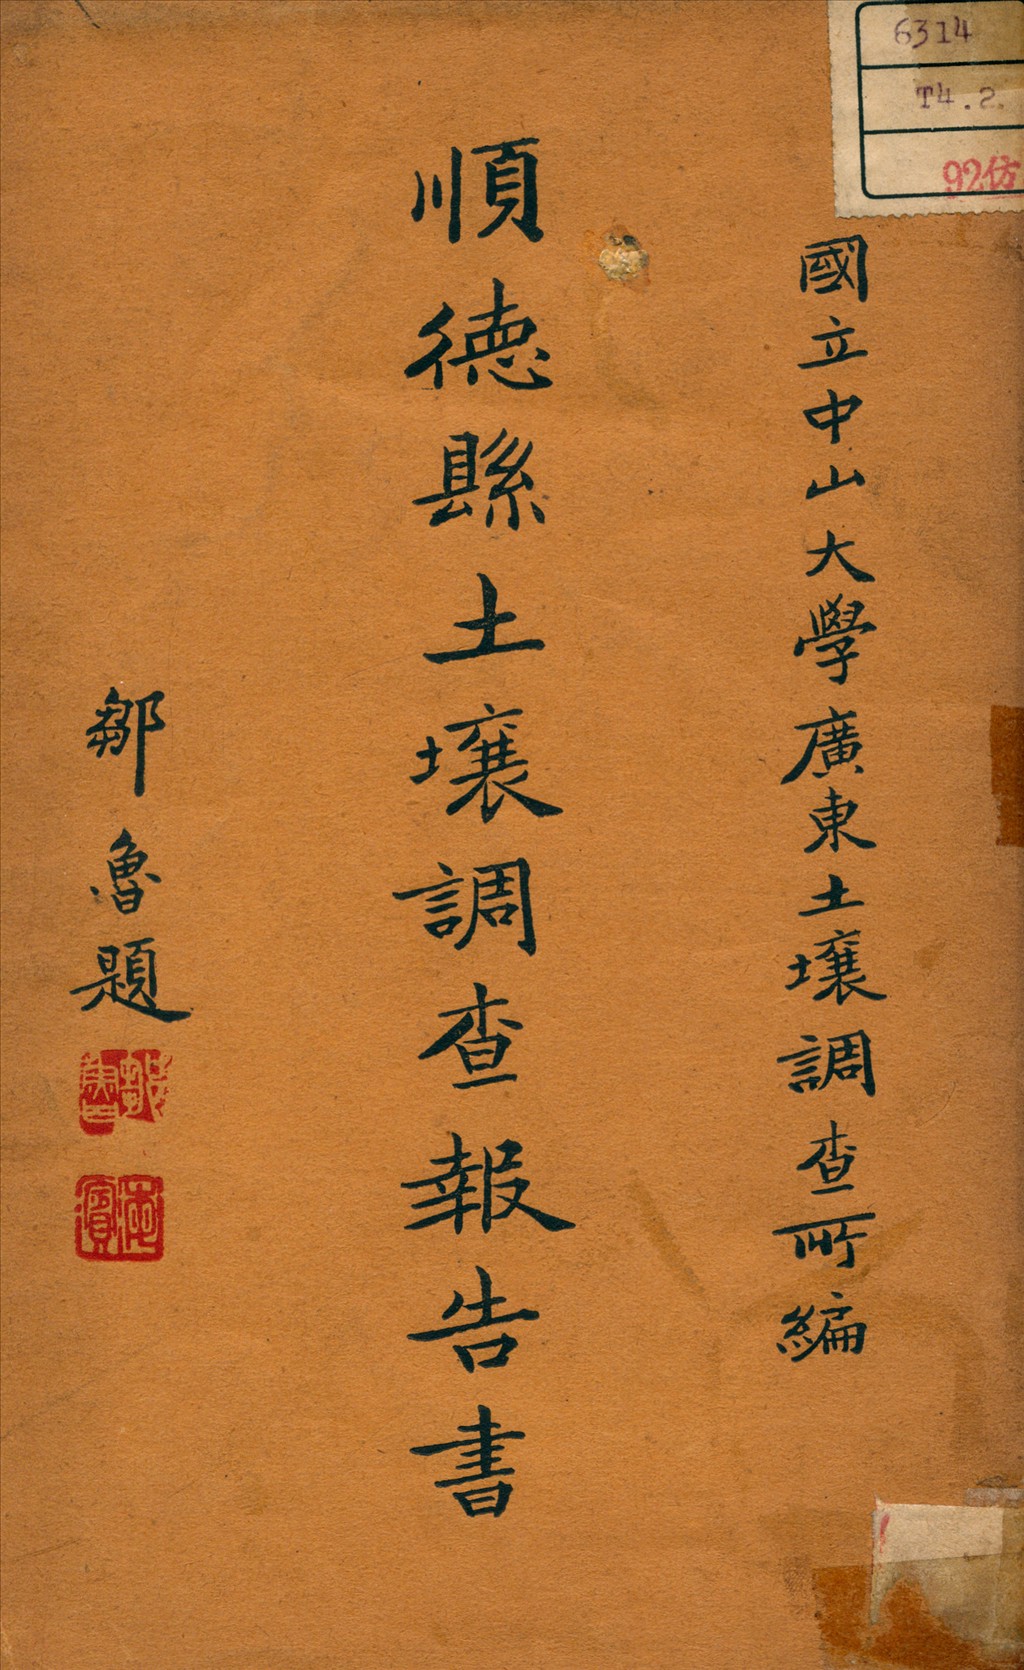 6314
T4.2
92仿
國立中山大學廣東土壤調查所編
順德縣土壤調查報告書
鄒魯題
鄒魯
海濱